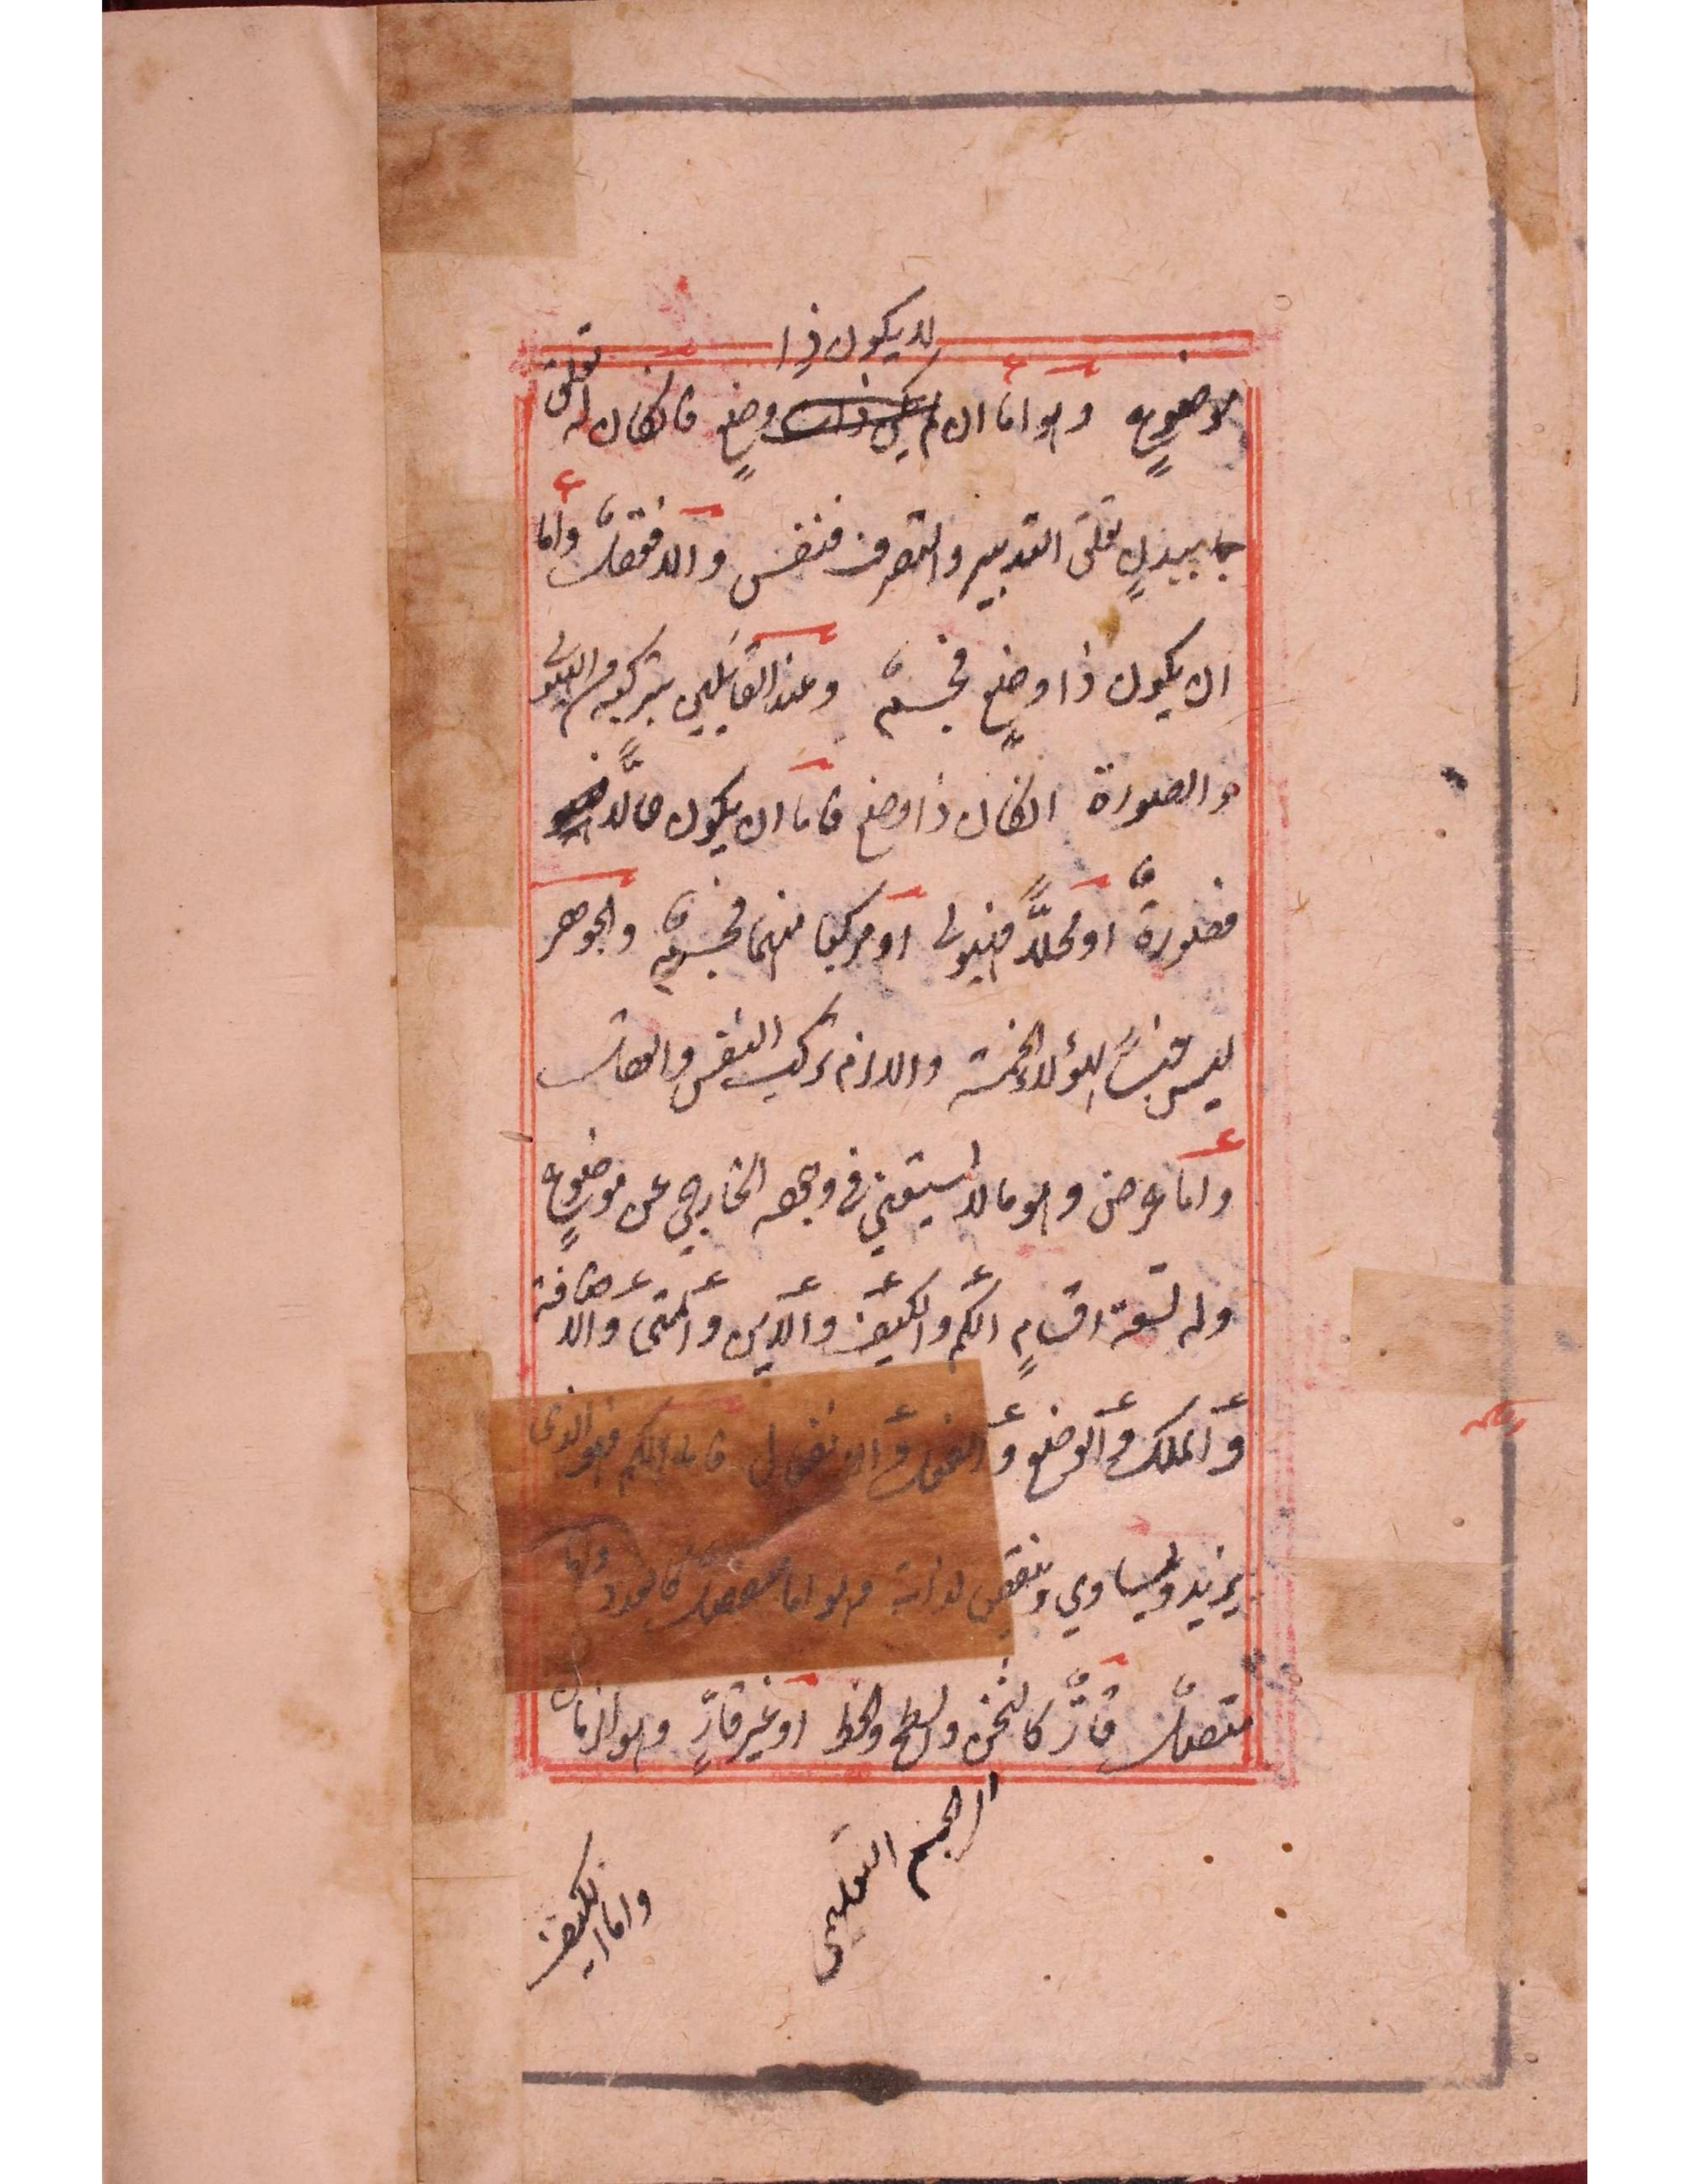 لا يكون ذا
موضوعٍ وهو اما ان لم يكن ذات وضعٍ فانكان له تعلق
ببدنٍ تعلق التدبير والتصرف فنفس والا فعقلٌ واما
ان يكون ذا وضعٍ فجسمٌ وعند القايلين بتركبه من الهيولى
والصورة انكان ذا وضع فاما ان يكون حالًّا
فصورةٌ او محلًّا فهيولى او مركبا منهما فجسمٌ والجوهر
ليس جنسًا لهؤلاء الخمسة والا لزم تركب النفس والعقل
واما عرض وهو ما لا يستغني في وجوده الخارجي عن موضوعٍ
وله تسعة اقسامٍ الكم والكيف والاين والمتى والاضافة
والملك والوضع والفعل والانفعال فاما الكم فهو الذى
يزيد ويساوي وينقص لذاته وهو اما منفصل كالعدد واما
متصل قارٌّ كالثخن والسطح والخط او غير قارٍّ وهو الزمان
الجسم التعليمى
واما الكيف